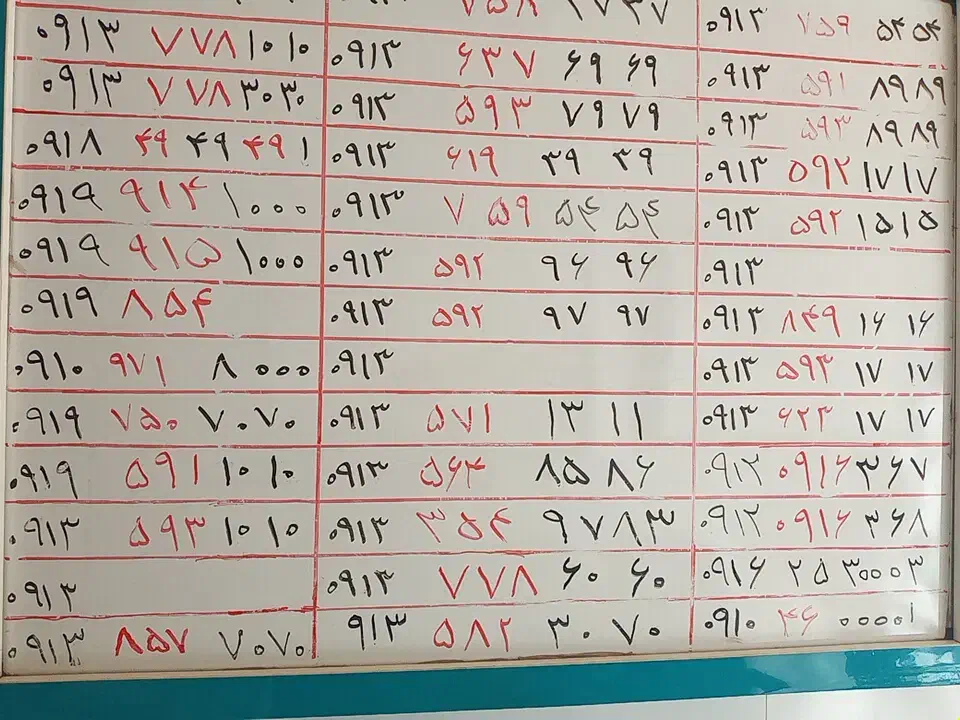 ۰۹۱۳ ۷۷۸ ۱۰ ۱۰
۰۹۱۳ ۷۷۸ ۳۰ ۳۰
۰۹۱۸ ۴۹ ۴۹ ۴۹ ۱
۰۹۱۹ ۹۱۴ ۱۰۰۰
۰۹۱۹ ۹۱۵ ۱۰۰۰
۰۹۱۹ ۸۵۴
۰۹۱۰ ۹۷۱ ۸۰۰۰
۰۹۱۹ ۷۵۰ ۷۰۷۰
۰۹۱۹ ۵۹۱ ۱۰ ۱۰
۰۹۱۳ ۵۹۳ ۱۰ ۱۰
۰۹۱۳
۰۹۱۳ ۸۵۷ ۷۰۷۰
۷۵۸ ۱۷۳۷
۰۹۱۳ ۶۳۷ ۶۹ ۶۹
۰۹۱۳ ۵۹۳ ۷۹ ۷۹
۰۹۱۳ ۶۱۹ ۳۹ ۳۹
۰۹۱۳ ۷ ۵۹ ۵۴ ۵۴
۰۹۱۳ ۵۹۲ ۹۶ ۹۶
۰۹۱۳ ۵۹۲ ۹۷ ۹۷
۰۹۱۳
۰۹۱۳ ۵۷۱ ۱۳ ۱۱
۰۹۱۳ ۵۶۴ ۸۵ ۸۶
۰۹۱۳ ۳۵۴ ۹۷۸۳
۰۹۱۳ ۷۷۸ ۶۰ ۶۰
۹۱۳ ۵۸۲ ۳۰ ۷۰
۰۹۱۳ ۷۵۹ ۵۴ ۵۴
۰۹۱۳ ۵۹۱ ۸۹ ۸۹
۰۹۱۳ ۵۹۳ ۸۹ ۸۹
۰۹۱۳ ۵۹۲ ۱۷ ۱۷
۰۹۱۳ ۵۹۲ ۱۵ ۱۵
۰۹۱۳
۰۹۱۳ ۸۴۹ ۱۶ ۱۶
۰۹۱۳ ۵۹۳ ۱۷ ۱۷
۰۹۱۳ ۶۲۳ ۱۷ ۱۷
۰۹۱۲ ۰۹۱۶ ۳۶۷
۰۹۱۲ ۰۹۱۶ ۳۶۸
۰۹۱۶ ۲۵ ۳۰۰۰۳
۰۹۱۰ ۴۶ ۰۰۰۰۱